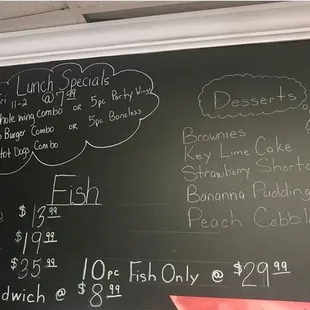 Lunch Specials
Fri 11-2 @ 7.99
whole wing combo or 5pc Party Wings
Burger Combo or 5pc Boneless
Hot Dogs Combo
Desserts
Brownies
Key Lime Cake
Strawberry Short
Bananna Pudding
Peach Cobbl
Fish
@ $13.99
$19.99
$35.99
10pc Fish Only @ $29.99
dwich @ $8.99